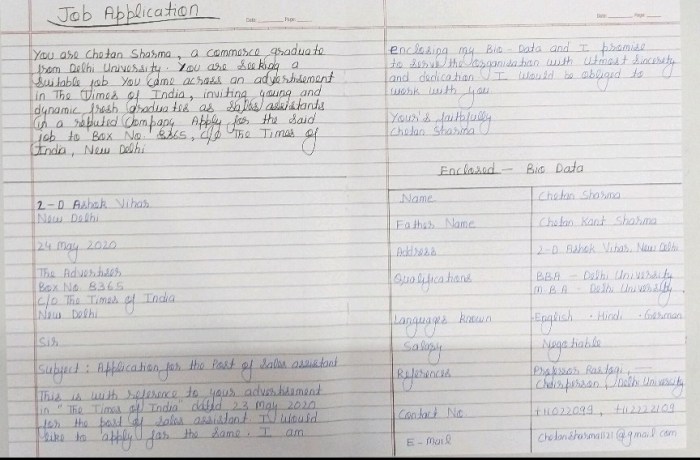 Job Application
Date: Page:
You are Chetan Sharma, a commerce graduate
from Delhi University. You are seeking a
suitable job You came across an advertisement
in The Times of India, inviting young and
dynamic fresh graduates as sales assistants
in a reputed Company Apply for the said
job to Box No. 8365, c/o The Times of
India, New Delhi
2-D Ashok Vihar
New Delhi
24 May 2020
The Advertiser
Box No. 8365
c/o The Times of India
New Delhi
Sir
Subject : Application for the Post of Sales assistant
This is with reference to your advertisement
in "The Times of India" dated 23 May 2020
for the post of sales assistant I would
like to apply for the same. I am
Date: Page:
enclosing my Bio-Data and I promise
to serve the organisation with utmost sincerity
and dedication I would be obliged to
work with you
Your's faithfully
Chetan Sharma
Enclosed - Bio Data
Name Chetan Sharma
Father Name Chetan Kant Sharma
Address 2-D Ashok Vihar, New Delhi
Qualifications BBA - Delhi University
MBA - Delhi University
Languages known English · Hindi · German
Salary Negotiable
References Professor Rastogi,
Chairperson Delhi University
Contact No. +11022099, +112222109
E-Mail @gmail.com